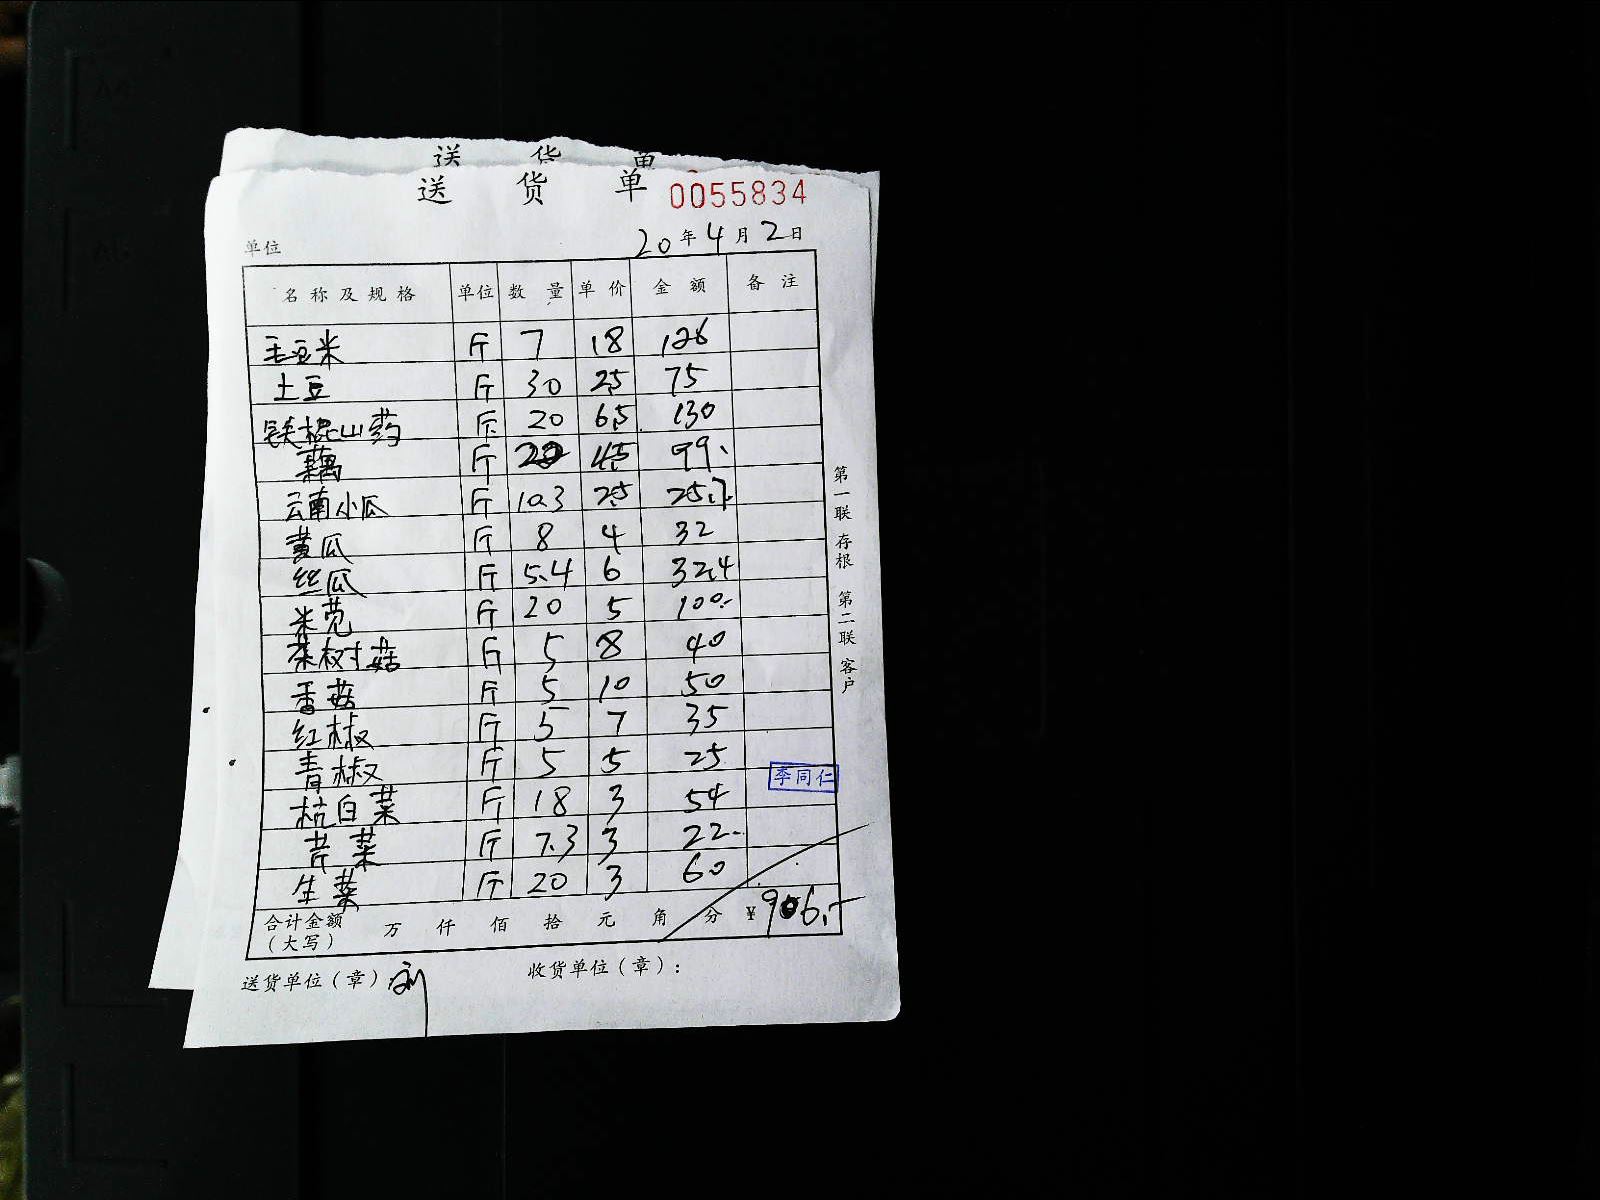 送 货 单
送 货 单 0055834
单位 20年4月2日
名称及规格 单位 数量 单价 金额 备注
毛豆米 斤 7 18 126
土豆 斤 30 2.5 75
铁棍山药 斤 20 6.5 130
藕 斤 4.5 99.
云南小瓜 斤 10.3 2.5 25.7
黄瓜 斤 8 4 32
丝瓜 斤 5.4 6 32.4
米苋 斤 20 5 100.
茶树菇 斤 5 8 40
香菇 斤 5 10 50
红椒 斤 5 7 35
青椒 斤 5 5 25
杭白菜 斤 18 3 54
芹菜 斤 7.3 3 22.
生菜 斤 20 3 60
李同仁
合计金额（大写） 万 仟 佰 拾 元 角 分 ¥906.-
送货单位（章） 刘 收货单位（章）：
第一联 存根 第二联 客户